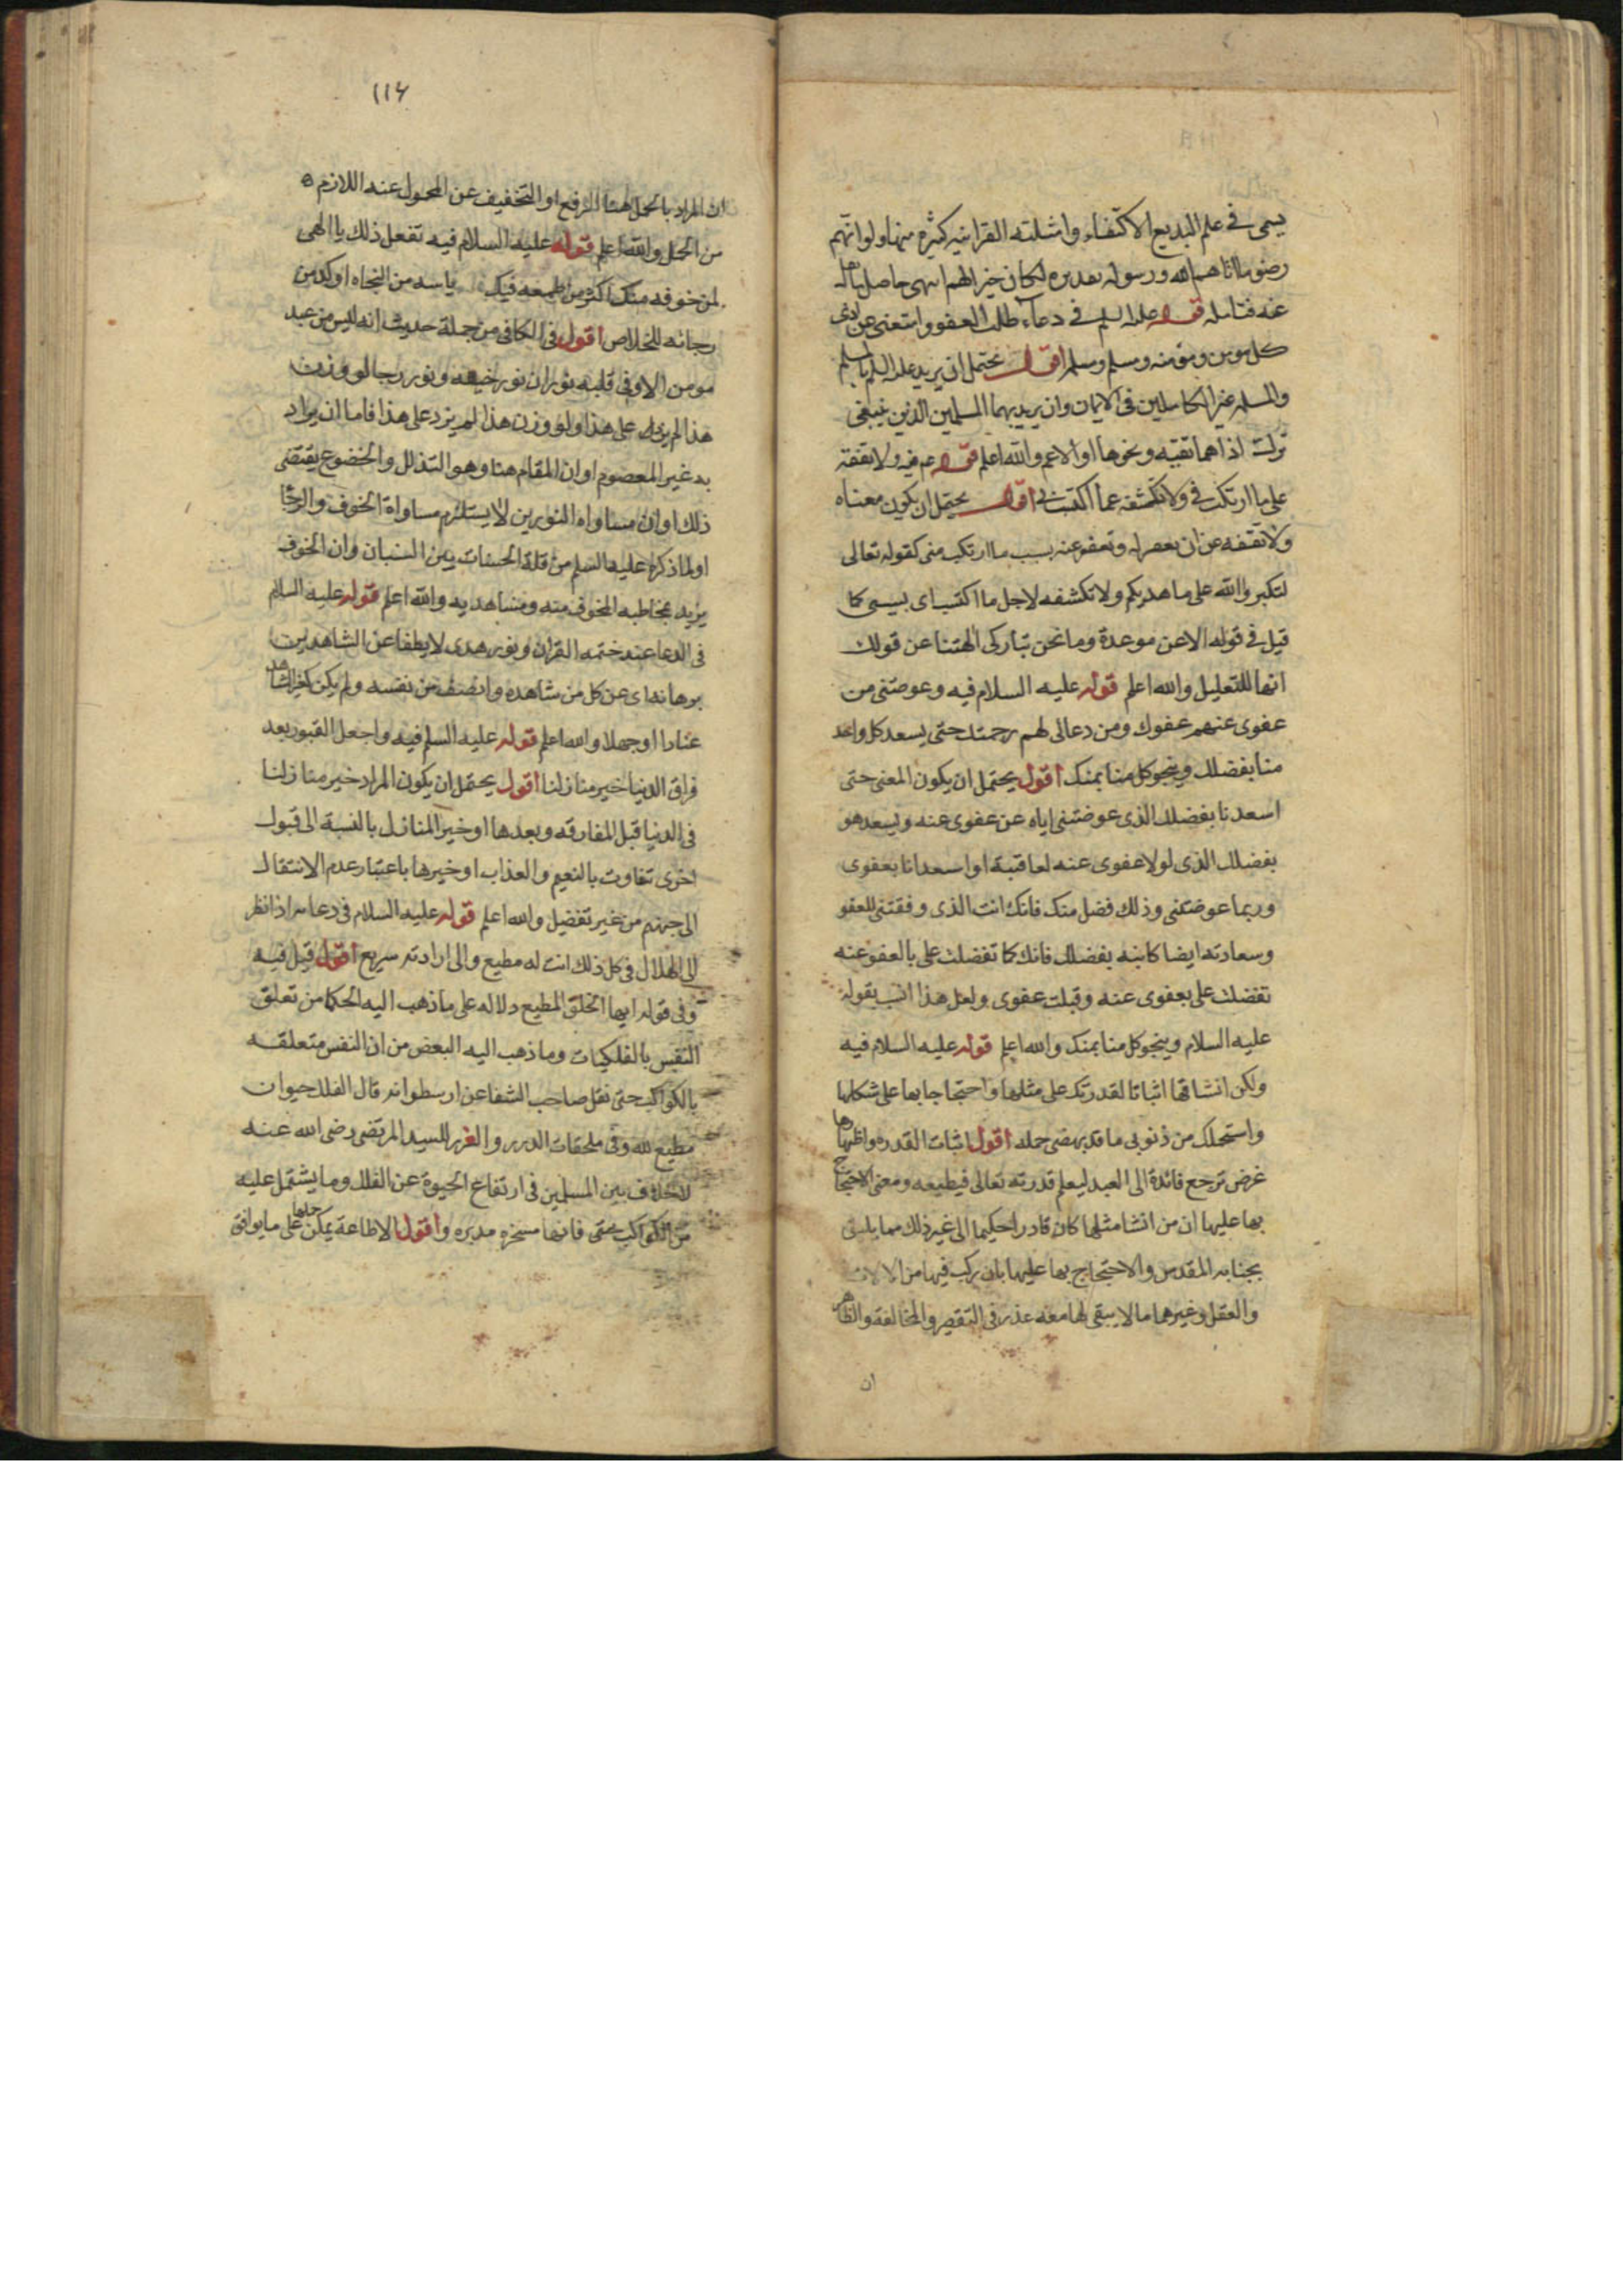 يسمى في علم البديع الاكتفاء وامثلته القرانيه كثيره منها ولو انهم
رضوا ما اتاهم الله ورسوله تقديره لكان خيرا لهم انتهى حاصل ما نقل
عنه فتامله قوله عليه السلم في دعاء طلب العفو واستغنى عن اذى
كل مومن ومومنه ومسلم ومسلمه اقول يحتمل ان يريد عليه السلم بالمسلم
والمسلمه غير الكاملين في الايمان وان يريد بهما المسلمين الذين ينبغي
ترك اذاهما تقيه ونحوها او الاعم والله اعلم قوله عم فيه ولا تقفه
على ما ارتكب في ولا تكشفه عما اكتسب بي اقول يحتمل ان يكون معناه
ولا تقفه عن ان تغفر له وتعفو عنه بسبب ما ارتكب مني كقوله تعالى
لتكبروا الله على ما هديكم ولا تكشفه لاجل ما اكتسب اي بسببي كما
قيل في قوله الا عن موعدة وما نحن بتاركي الهتنا عن قولك
انها للتعليل والله اعلم قوله عليه السلام فيه وعوضني من
عفوي عنهم عفوك ومن دعائي لهم رحمتك حتى يسعد كل واحد
منا بفضلك وينجو كل منا بمنك اقول يحتمل ان يكون المعنى حتى
اسعد انا بفضلك الذي عوضتني اياه عن عفوي عنه ويسعد هو
بفضلك الذي لولا عفوي عنه لعاقبته او اسعد انا بعفوي
وربما عوضتني وذلك فضل منك فانك انت الذي وفقتني للعفو
وسعادته ايضا كاينه بفضلك فانك كما تفضلت علي بالعفو عنه
تفضلت علي بعفوي عنه وقبلت عفوي ولعل هذا انسب بقوله
عليه السلام وينجو كل منا بمنك والله اعلم قوله عليه السلام فيه
ولكن انشاتها اثباتا لقدرتك على مثلها واحتجاجا بها على شكلها
واستحملك من ذنوبي ما قد بهضني حمله اقول اثبات القدره واظهارها
غرض ترجع فائدة الى العبد ليعلم قدرته تعالى فيطيعه ومعنى الاحتجاج
بها عليها ان من انشا مثلها كان قادرا حكيما الى غير ذلك مما يليق
بجنابه المقدس والاحتجاج بها عليها بان ركب فيها من الالات
والعقل وغيرهما ما لا يبقى لها معه عذر في التقصير والمخالفة والظاهر
ان
١١٤
ان المراد بالحمل هنا الرفع او التخفيف عن المحمول عنه اللازم
من الحمل والله اعلم قوله عليه السلام فيه تفعل ذلك يا الهي
لمن خوفه منك اكثر من طمعه فيك ياسه من النجاه اوكد من
رجائه للخلاص اقول في الكافي من جملة حديث انه ليس من عبد
مومن الا وفي قلبه نوران نور خيفه ونور رجا لو وزن
هذا لم يزد على هذا ولو وزن هذا لم يزد على هذا فاما ان يراد
به غير المعصوم او ان المقام هنا وهو التذلل والخضوع يقتضي
ذلك او ان مساواه النورين لا يستلزم مساواة الخوف والرجا
او لما ذكره عليه السلم من قلة الحسنات بين السيئات وان الخوف
يزيد بمخاطبه المخوف منه ومشاهديه والله اعلم قوله عليه السلام
في الدعا عند ختمه القران ونور هدى لا يطفا عن الشاهدين
برهانه اي عن كل من شاهده وانصف من نفسه ولم يكن كغير الشاهد
عنادا او جهلا والله اعلم قوله عليه السلم فيه واجعل القبور بعد
فراق الدنيا خير منازلنا اقول يحتمل ان يكون المراد خير منازلنا
في الدنيا قبل المفارقه وبعدها او خير المنازل بالنسبة الى قبول
اخرى تفاوت بالنعيم والعذاب او خيرها باعتبار عدم الانتقال
الى جهنم من غير تفضيل والله اعلم قوله عليه السلام في دعائه اذا نظر
الى الهلال في كل ذلك انت له مطيع والى ارادته سريع اقول قيل فيه
وفي قوله ايها الخلق المطيع دلاله على ما ذهب اليه الحكما من تعلق
النفس بالفلكيات وما ذهب اليه البعض من ان النفس متعلقه
بالكواكب حتى نقل صاحب الشفا عن ارسطو انه قال الفلك حيوان
مطيع لله وفي ملحقات الدرر والغرر للسيد المرتضى رضي الله عنه
لا خلاف بين المسلمين في ارتفاع الحيوة عن الفلك وما يشتمل عليه
من الكواكب حتى فانها مسخره مدبره واقول الاطاعة يمكن حملها على ما يوافق